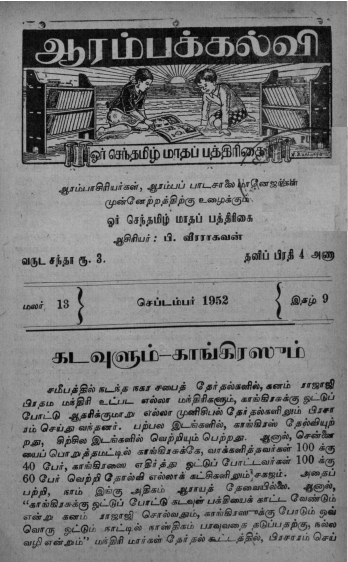 ஆரம்பக்கல்வி
ஓர் செந்தமிழ் மாதப் பத்திரிகை
ஆரம்பாசிரியர்கள், ஆரம்பப் பாடசாலை மானேஜர்கள்
முன்னேற்றத்திற்கு உழைக்கும்
ஓர் செந்தமிழ் மாதப் பத்திரிகை
ஆசிரியர் : பி. வீரராகவன்
வருட சந்தா ரூ. 3.
தனிப் பிரதி 4 அணா
மலர் 13
செப்டம்பர் 1952
இதழ் 9
கடவுளும்—காங்கிரஸும்
சமீபத்தில் நடந்த நகர சபைத் தேர்தல்களில், கனம் ராஜாஜி
பிரதம மந்திரி உட்பட எல்லா மந்திரிகளும், காங்கிரசுக்கு ஓட்டுப்
போட்டு ஆதரிக்குமாறு எல்லா முனிசிபல் தேர்தல்களிலும் பிரசா
ரம் செய்து வந்தனர். பற்பல இடங்களில், காங்கிரஸ் தோல்வியுற்
றது, சிற்சில இடங்களில் வெற்றியும் பெற்றது. ஆனால், சென்னை
யைப் பொறுத்தமட்டில் காங்கிரசுக்கே, வாக்களித்தவர்கள் 100 க்கு
40 பேர், காங்கிரஸை எதிர்த்து ஓட்டுப் போட்டவர்கள் 100 க்கு
60 பேர் வெற்றி தோல்வி எல்லாக் கட்சிகளிலும் சகஜம். அதைப்
பற்றி, நாம் இங்கு அதிகம் ஆராயத் தேவையில்லை. ஆனால்,
"காங்கிரசுக்கு ஓட்டுப் போட்டு கடவுள் பக்தியைக் காட்ட வேண்டும்
என்று கனம் ராஜாஜி சொல்வதும், காங்கிரஸுக்கு போடும் ஒவ்
வொரு ஓட்டும் நாட்டில் நாஸ்திகம் பரவுவதை தடுப்பதற்கு, நல்ல
வழி என்றும்" மந்திரி மார்கள் தேர்தல் கூட்டத்தில், பிரசாரம் செய்